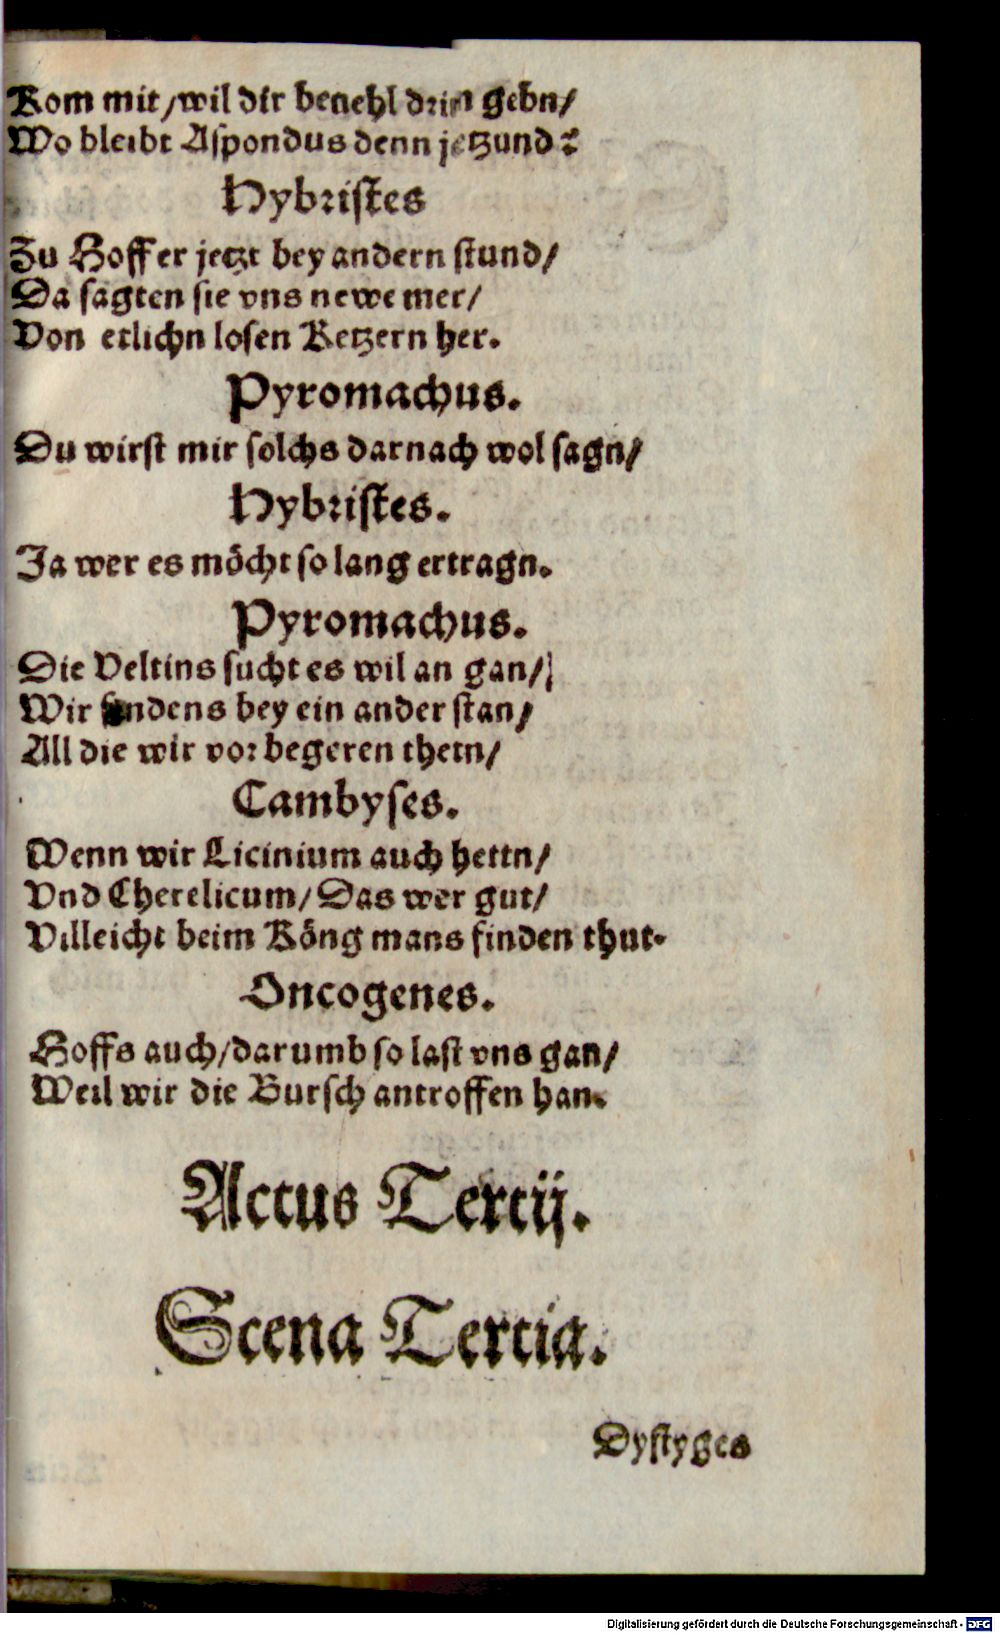 Kom mit / wil dir benehl drin gebn /
Wo bleibt Aſpondus denn jetzund?
Hybriſtes
Zu Hoff er jetzt bey andern ſtund /
Da ſagten ſie vns newe mer /
Von etlichn loſen Ketzern her.
Pyromachus.
Du wirſt mir ſolchs darnach wol ſagn /
Hybriſtes.
Ja wer es möcht ſo lang ertragn.
Pyromachus.
Die Veltins ſucht es wil an gan /
Wir findens bey ein ander ſtan /
All die wir vor begeren thetn /
Cambyſes.
Wenn wir Licinium auch hettn /
Vnd Cherelicum / Das wer gut /
Villeicht beim Köng mans finden thut.
Oncogenes.
Hoffs auch / darumb ſo laſt vns gan /
Weil wir die Burſch antroffen han.
Actus Tertij.
Scena Tertia.
Dyſtyges
Digitalisierung gefördert durch die Deutsche Forschungsgemeinschaft - DFG